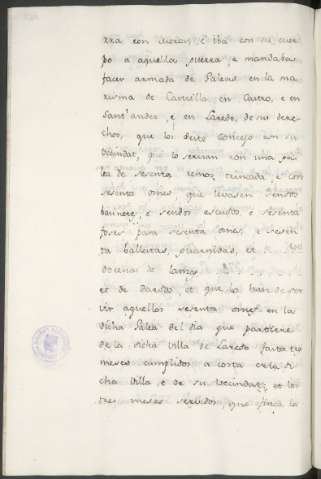 rra con moros, e iba con su cuer
po a aquella guerra e mandaba
facer armada de Galeas en la ma
risma de Castilla en Castro, e en
Sant ander, e en Laredo, de sus dere
chos, que los dicho Concejo con su
vecindat, que lo sirvan con una
lea de sesenta remos reinada, e con
sesenta omes, que levasen sendos
e sendos escudos, e sesenta
foses para sesenta omes, e sesen
ta ballestas, guarnidas, et
docenas de lanzas
et de dardos, et que la han de ser
vir aquellos sesenta omes en la
dicha Galea del dia que partiere
de la dicha villa de Laredo fasta tres
meses cumplidos a costa de la di
cha villa, e de su vecindat, et los
tres meses servidos, que la